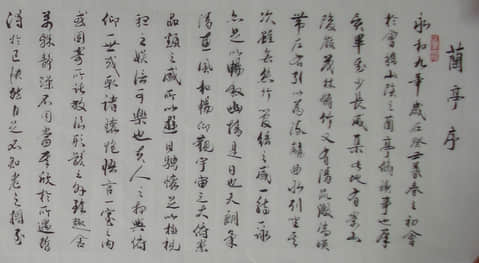 蘭亭序
永和九年歲在癸丑暮春之初會
於會稽山陰之蘭亭脩禊事也群
賢畢至少長咸集此地有崇山
峻領茂林脩竹又有清流激湍映
帶左右引以為流觴曲水列坐其
次雖無絲竹管絃之盛一觴一詠
亦足以暢敘幽情是日也天朗氣
清惠風和暢仰觀宇宙之大俯察
品類之盛所以遊目騁懷足以極視
聽之娛信可樂也夫人之相與俯
仰一世或取諸懷抱悟言一室之內
或因寄所託放浪形骸之外雖趣舍
萬殊靜躁不同當其欣於所遇暫
得於己快然自足不知老之將至